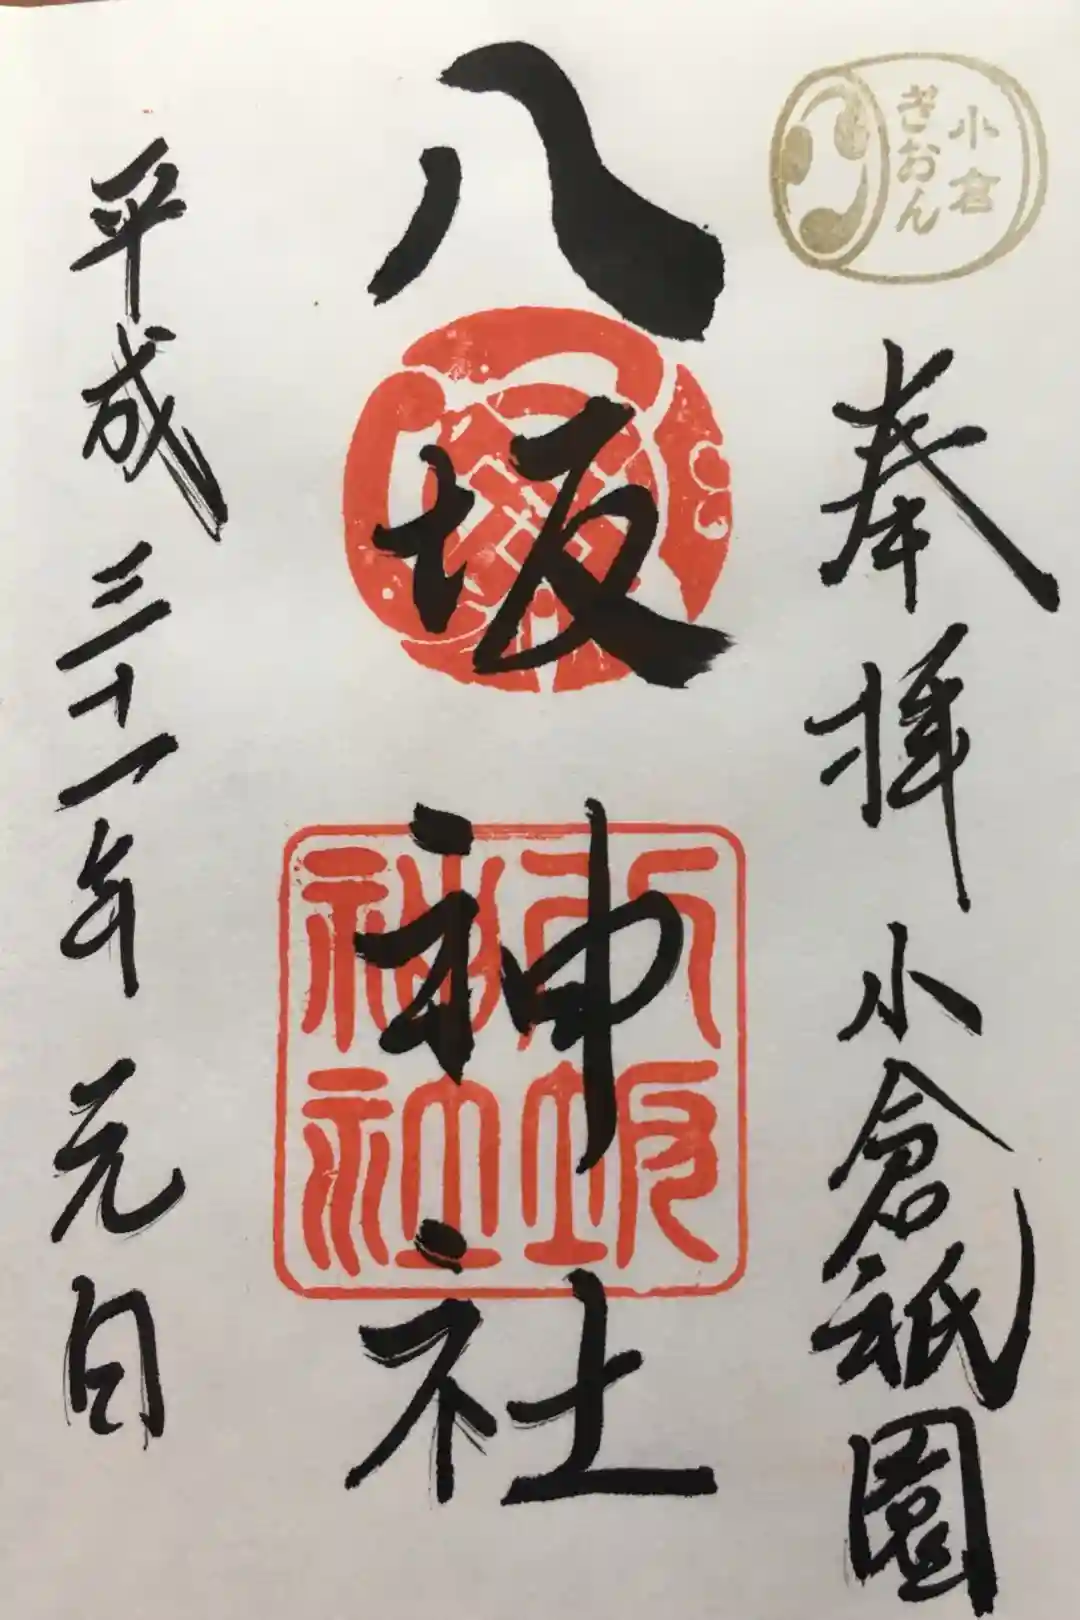 小倉
ぎおん
奉拝 小倉祇園
八坂神社
八坂
神社
平成三十一年元旦